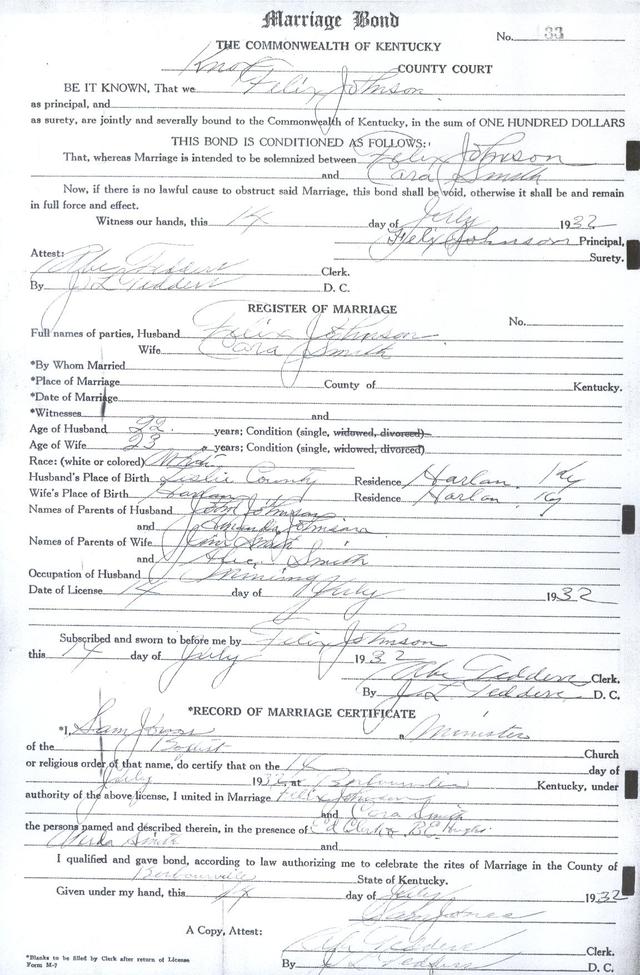 Marriage Bond
No. 33
THE COMMONWEALTH OF KENTUCKY
Knox COUNTY COURT
BE IT KNOWN, That we Felix Johnson
as principal, and
as surety, are jointly and severally bound to the Commonwealth of Kentucky, in the sum of ONE HUNDRED DOLLARS
THIS BOND IS CONDITIONED AS FOLLOWS:
That, whereas Marriage is intended to be solemnized between Felix Johnson
and Cora Smith
Now, if there is no lawful cause to obstruct said Marriage, this bond shall be void, otherwise it shall be and remain
in full force and effect.
Witness our hands, this 14 day of July 1932
Felix Johnson Principal,
Surety.
Attest:
Abe Tedders Clerk.
By J L Tedders D. C.
REGISTER OF MARRIAGE
No.
Full names of parties, Husband Felix Johnson
Wife Cora Smith
*By Whom Married
*Place of Marriage County of Kentucky.
*Date of Marriage
*Witnesses and
Age of Husband 22 years; Condition (single, widowed, divorced)
Age of Wife 23 years; Condition (single, widowed, divorced)
Race: (white or colored) White
Husband's Place of Birth Leslie County Residence Harlan, Ky
Wife's Place of Birth Harlan Residence Harlan Ky
Names of Parents of Husband John Johnson
and Johnson
Names of Parents of Wife Jim Smith
and Alice Smith
Occupation of Husband Mining
Date of License 14 day of July 1932
Subscribed and sworn to before me by Felix Johnson
this 14 day of July 1932
Abe Tedders Clerk.
By J. L. Tedders D. C.
*RECORD OF MARRIAGE CERTIFICATE
*I, Sam Jones a Minister
of the Baptist Church
or religious order of that name, do certify that on the 14 day of
July 1932, at Barbourville Kentucky, under
authority of the above license, I united in Marriage Felix Johnson
and Cora Smith
the persons named and described therein, in the presence of Ed Clark & B.E. Hughes
Smith and
I qualified and gave bond, according to law authorizing me to celebrate the rites of Marriage in the County of
Barbourville State of Kentucky.
Given under my hand, this 14 day of July 1932
Sam Jones
A Copy, Attest:
Abe Tedders Clerk.
By J L Tedders D. C.
*Blanks to be filled by Clerk after return of License
Form M-7